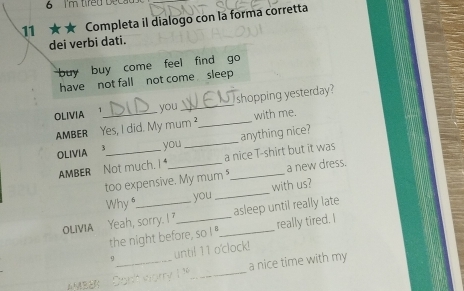 6 I'm tired because
11 ★★ Completa il dialogo con la forma corretta
dei verbi dati.
buy buy come feel find go
have not fall not come sleep
OLIVIA 1 DID you WENT shopping yesterday?
AMBER Yes, I did. My mum 2 ______ with me.
OLIVIA 3 ______ you ______ anything nice?
AMBER Not much. I 4 ______ a nice T-shirt but it was
too expensive. My mum 5 ______ a new dress.
Why 6 ______ you ______ with us?
OLIVIA Yeah, sorry. I 7 ______ asleep until really late
the night before, so I 8 ______ really tired. I
9 ______ until 11 o'clock!
AMBER Don't worry. I 10 ______ a nice time with my